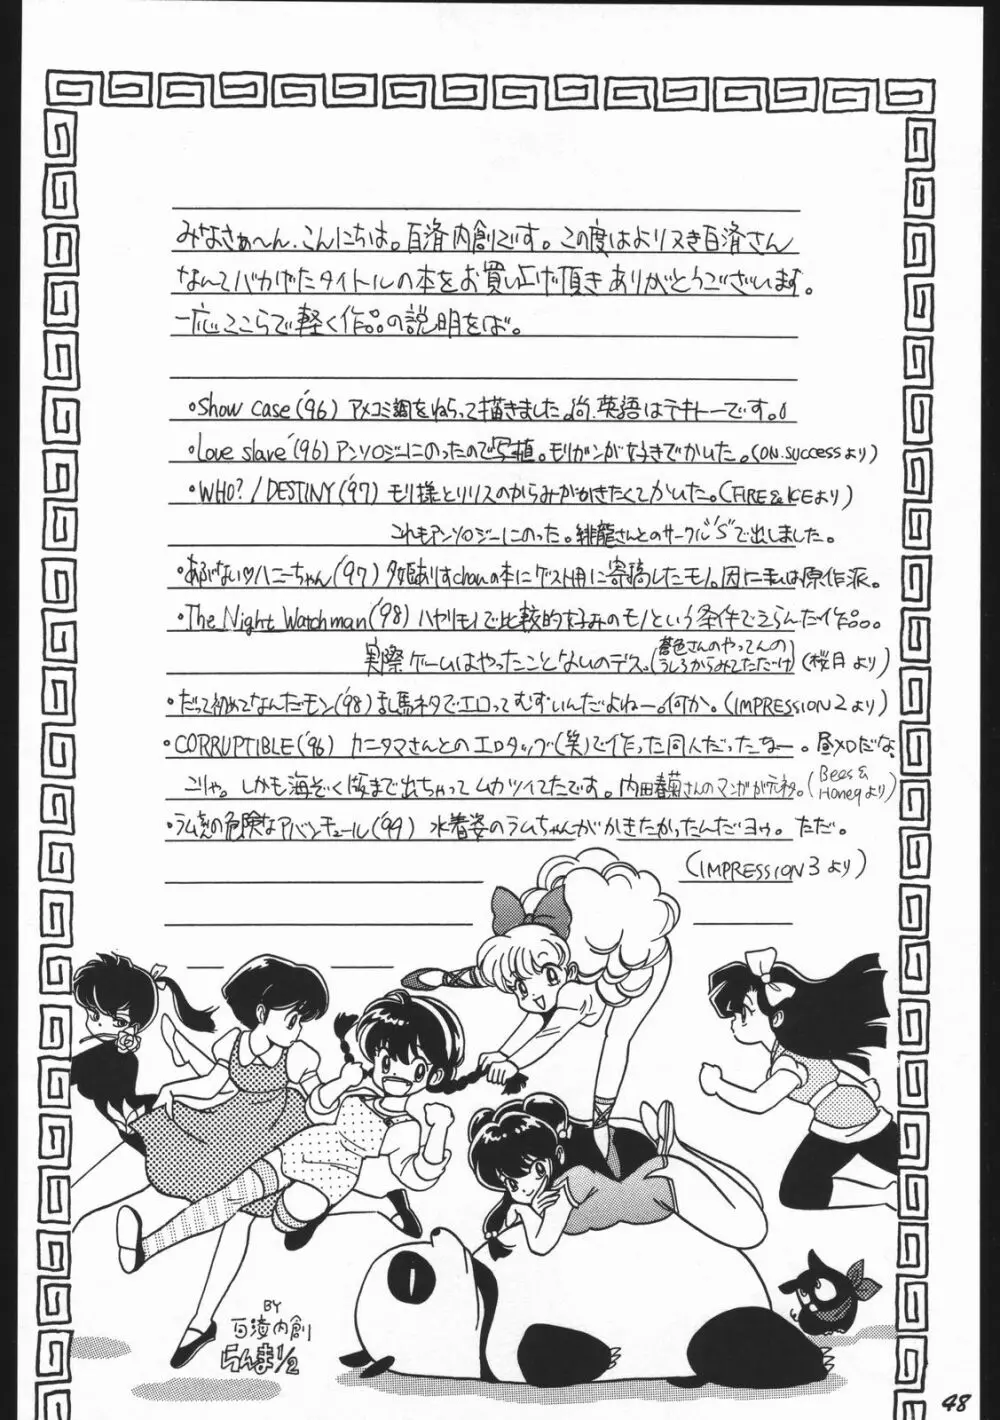 みなさぁ〜ん、こんにちは。百済内創です。この度はよりヌき百済さん
なんてバカげたタイトルの本をお買い上げ頂きありがとうございます。
一応ここらで軽く作品の説明をば。
・Show case('96) アメコミ調をねらって描きました。尚、英語はテキトーです。
・Love slave('96) アンソロジーにのったので写植。モリガンが好きでかいた。(ON.SUCCESSより)
・WHO?/DESTINY('97) モリ様とリリスのからみがかきたくてかいた。(FIRE&ICEより)
これもアンソロジーにのった。緋龍さんとのサークル"S"で出しました。
・あぶない♡ハニーちゃん('97) 夕姫ありすchanの本にゲスト用に寄稿したモノ。因に私は原作派。
・The Night Watchman('98) ハヤリモノで比較的好みのモノという条件でえらんだ作品。
実際ゲームはやったことないのデス。(蒼色さんのやってんのうしろからみてただけ) (桜月より)
・だって初めてなんだモン('98) 乱馬ネタでエロってむずいんだよねー。何か。(IMPRESSION2より)
・CORRUPTIBLE('96) カニタマさんとのエロタッグ(笑)で作った同人だったなー。昼メロだな、
こりゃ。しかも海ぞく版まで出ちゃってムカツイてたです。内田春菊さんのマンガが元ネタ。(Bees & Honeyより)
・ラムちゃんの危険なアバンチュール('99) 水着姿のラムちゃんがかきたかったんだヨゥ。ただ。
(IMPRESSION3より)
BY
百済内創
らんま1/2
48